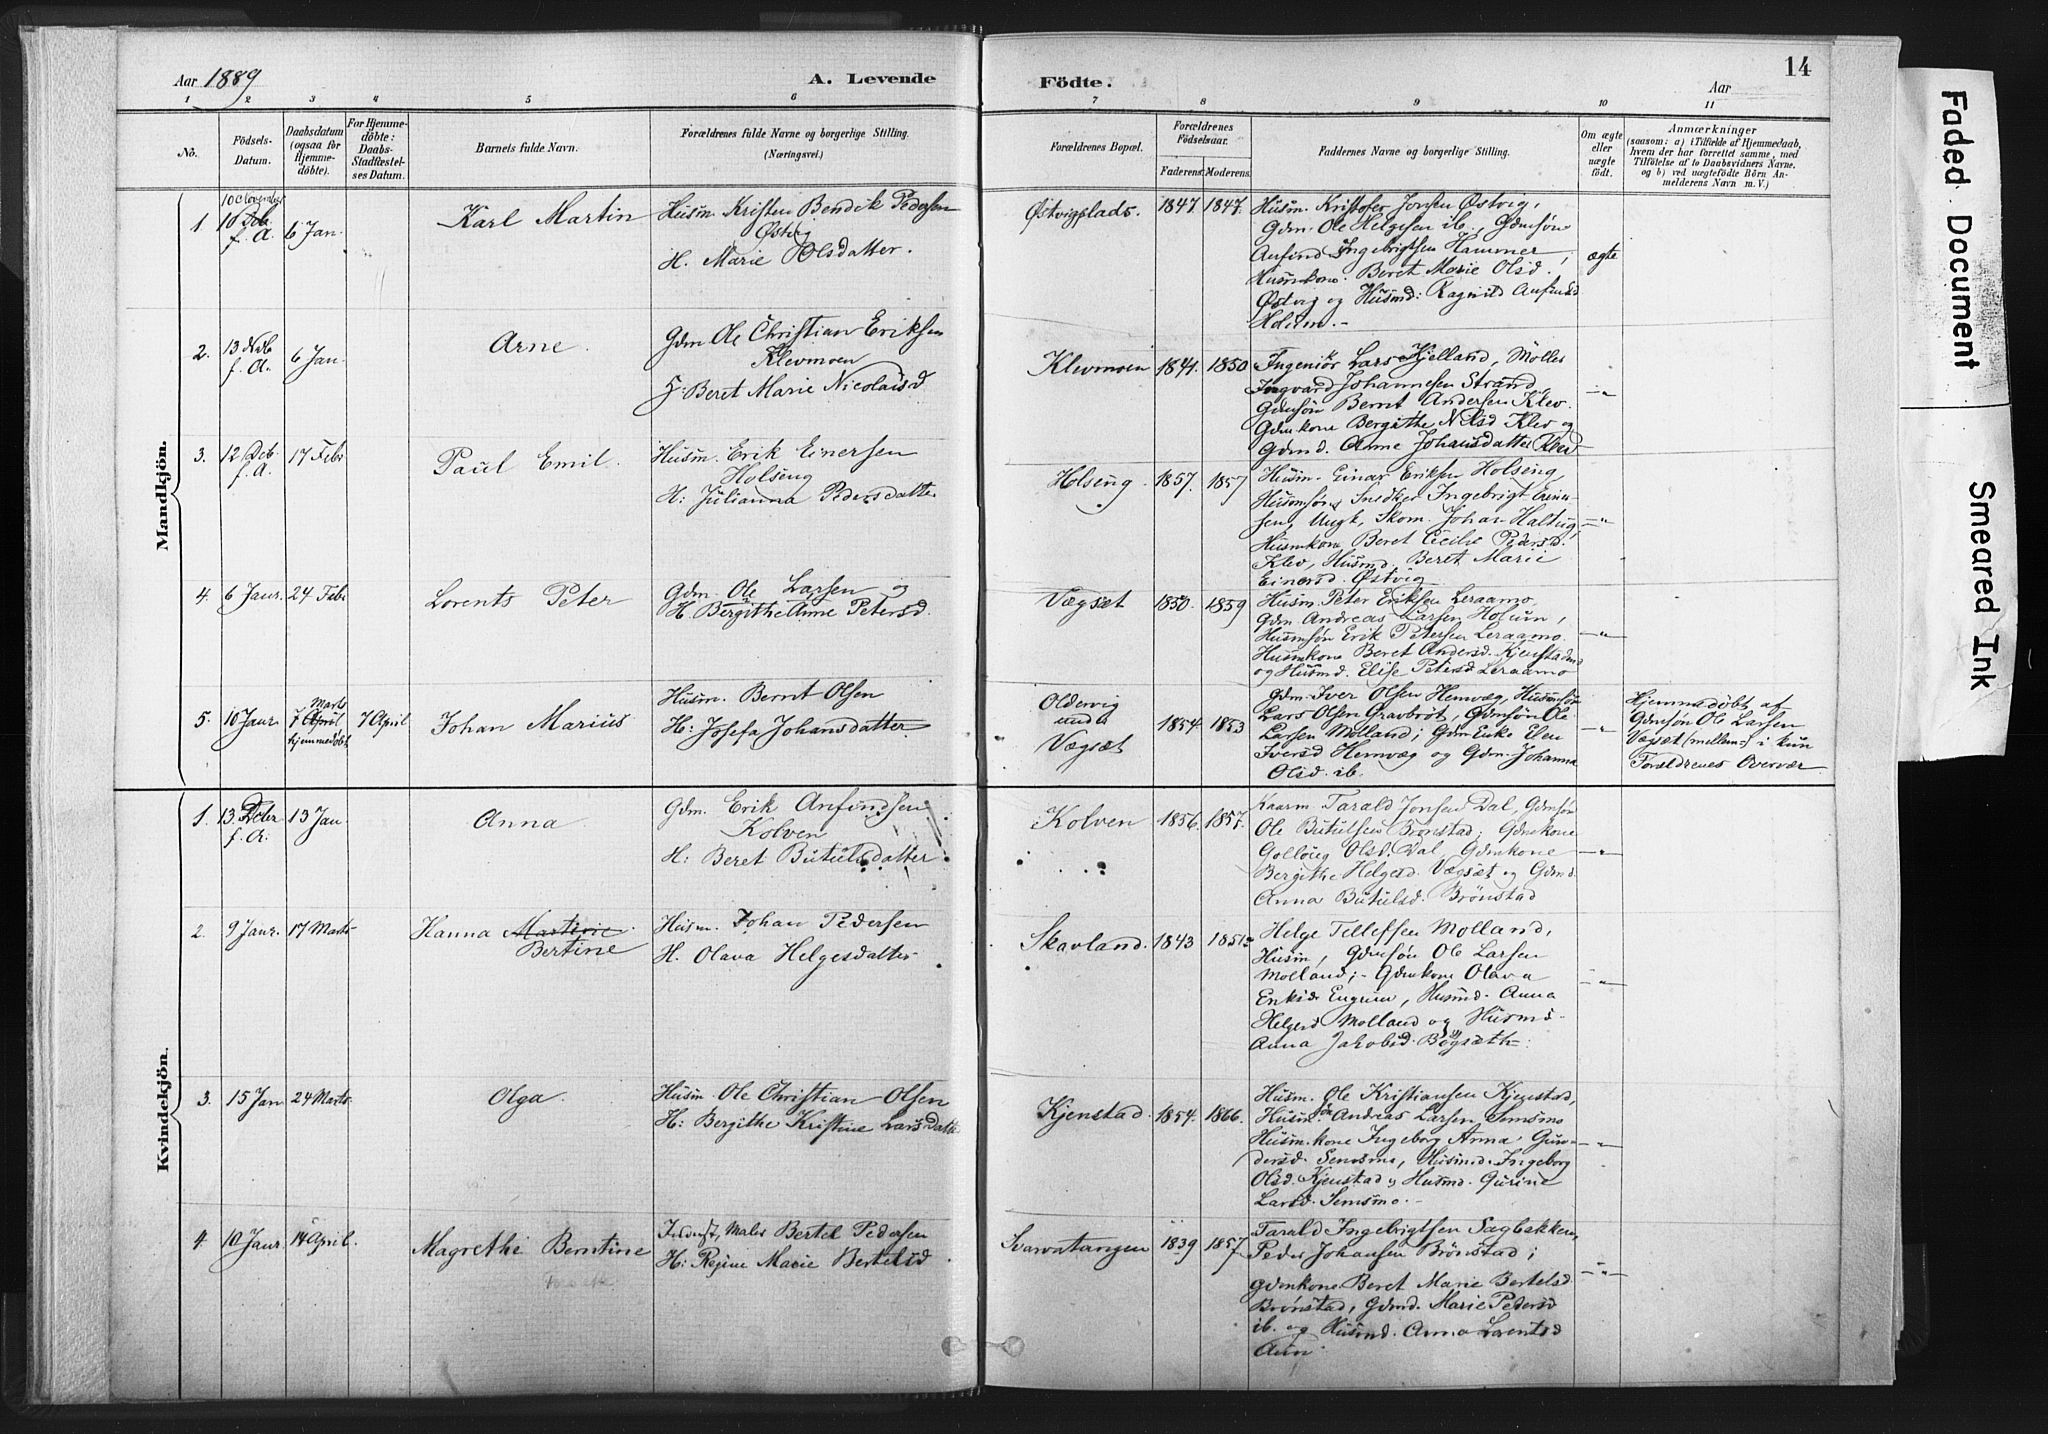 Aar 1889
A. Levende
Födte.
Aar
14
1 2 3 4 5 6 7 8 9 10 11
No.
Födsels-
Datum.
Daabsdatum
(ogsaa for
Hjemme-
døbte).
For Hjemme-
døbte:
Daabs-
Stadfæstel-
ses Datum.
Barnets fulde Navn.
Forældrenes fulde Navne og borgerlige Stilling.
(Næringsvei.)
Forældrenes Bopæl.
Forældrenes
Födselsaar.
Faderens. Moderens.
Faddernes Navne og borgerlige Stilling.
Om ægte
eller
uægte
födt.
Anmærkninger
(saasom: a) i Tilfælde af Hjemmedaab,
hvem der har forrettet samme, med
Tilföielse af to Daabsvidners Navne,
og b) ved uægtefödte Börn An-
melderens Navn m. V.)
Mandkjön.
1
10 November
10 Deb.
f. A.
6 Jan.
Karl Martin
Husm. Kristen Bendik Pedersen
Østvig
H. Marie Olsdatter.
Østvigplads.
1847
1847.
Husm. Kristofer Jonsen Østvig,
Gdm. Ole Helgesen ib., Gdmsøn
Anfind Ingebrigtsen Hammer,
Husmkone. Beret Marie Olsd.
Østvig og Husmd: Ragnild Anfinsd
Holum.-
ægte
2.
13 Nvb.
f. A.
6 Jan.
Arne.
Gdm Ole Christian Eriksen
Klevmoen
H: Beret Marie Nicolaisd
Klevmoen
1841.
1850
Ingeniør Lars Kjelland, Møller
Ingvard Johannesen Strand,
Gdmsøn Bernt Andersen Klev.
Gdmkone Bergithe Nilsd Klev og
Gdmd. Anne Johansdatter Klev
—"—
3.
12 Deb.
f. A
17 Febr
Paul Emil.
Husm. Erik Einersen
Holseng
H: Julianna Pedersdatter
Holseng.
1857.
1857
Husm. Einar Eriksen Holseng,
Husmsøn, Snedker Ingebrigt Einar-
sen, Ungk, Skom. Johan Haltug,
Husmkone Beret Cecilie Pedersd.
Klev, Husmd. Beret Marie
Einersd. Østvig
—"—
4.
6 Janr.
24 Febr
Lorents Peter
Gdm. Ole Larsen og
H. Bergithe Anne Petersd.
Vægsæt
1850.
1859
Husm. Peter Eriksen Leraamo.
Gdm. Andreas Larsen Holum,
Husmsøn Erik Petersen Leraamo.
Husmkone Beret Andersd. Kjenstadmd
og Husmd. Elise Petersd Leraamo
—"—
5.
10 Janr.
Marts
7 April
hjemmedøbt
7 April
Johan Marius
Husm. Bernt Olsen
H: Josefa Johansdatter
Oldervig
under
Vægsæt
1854.
1853
Gdm. Iver Olsen Hemvæg, Husmsøn
Lars Olsen Gravbrøt, Gdmsøn Ole
Larsen Molland; Gdm Enke Elen
Iversd Hemvæg og Gdm. Johanna
Olsd. ib.
—"—
Hjemmedøbt af
Gdmsøn Ole Larsen
Vægsæt (mellem-) i kun
Forældrenes Overvær
Kvindekjön.
1.
13. Dcber
f. A.
13 Jan
Anna
Gdm. Erik Anfindsen
Kolven
H: Beret Butulsdatter
Kolven
1856.
1857.
Kaarm. Tarald Jonsen Dal, Gdmsøn
Ole Butulsen Brønstad; Gdmkone
Golloug Olsd. Dal, Gdmkone
Bergithe Helgesd. Vægsæt og Gdmd.
Anna Butulsd. Brønstad
—"—
2.
9 Janr.
17 Marts
Hanna Martine.
Bertine
Husm. Johan Pedersen
H. Olava Helgesdatter
Skavland.
1843
1851.
Helge Tellefsen Molland,
Husm, Gdmsøn Ole Larsen
Molland;- Gdmkone Olava
Eriksd. Engum, Husmd. Anna
Helgesd Molland og Husmd.
Anna Jakobsd. Bøgsæth.
—"—
3.
15 Jan
24 Marts
Olga.
Husm Ole Christian Olsen
H: Bergithe Kristine Larsdatter
Kjenstad.
1854.
1866.
Husm. Ole Kristiansen Kjenstad,
Husmsøn Andreas Larsen Semsmo
Husm.kone Ingeborg Anna Gun-
dersd. Semsmo, Husmd. Ingeborg
Olsd. Kjenstad og Husmd. Gurine
Larsd. Semsmo.-
—"—
4.
10 Janr.
14 April.
Magrethe Berntine
Inderst, Maler Bertel Pedersen
H: Regine Marie Bertelsd.
Svarvatangen
1839
1857
Tarald Ingebrigtsen Sagbakken,
Peder Johansen Brønstad;
Gdmkone Beret Marie Bertelsd.
Brønstad, Gdmd. Marie Pedersd
ib. og Husmd. Anna Lorentsd
Aun.
—"—
Faded Document
Smeared Ink